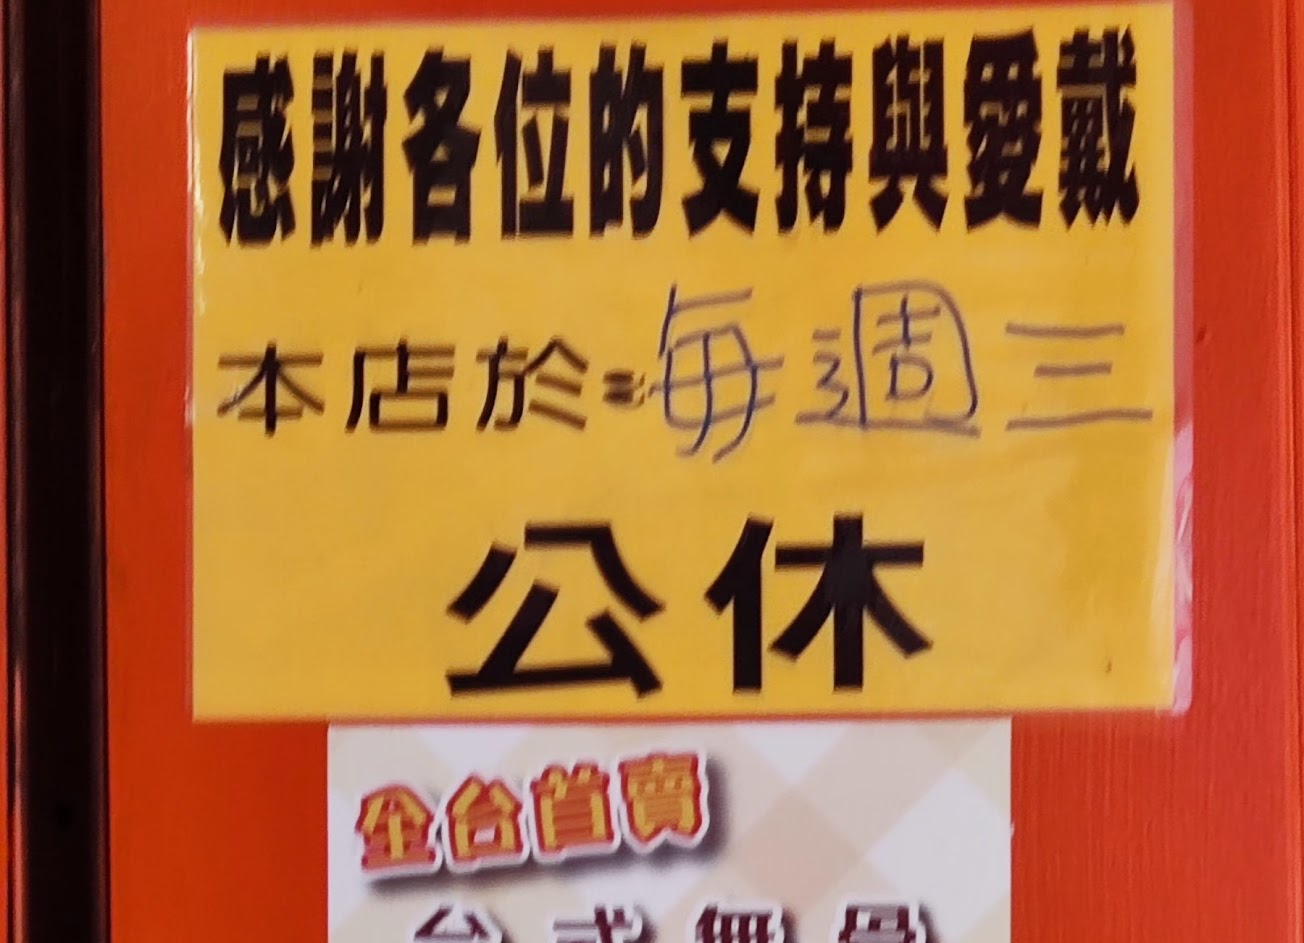 感謝各位的支持與愛戴
本店於:每週三
公休
全台首賣
台式無骨